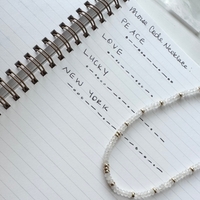 Morse Code Necklace
PEACE
LOVE
LUCKY
NEW YORK